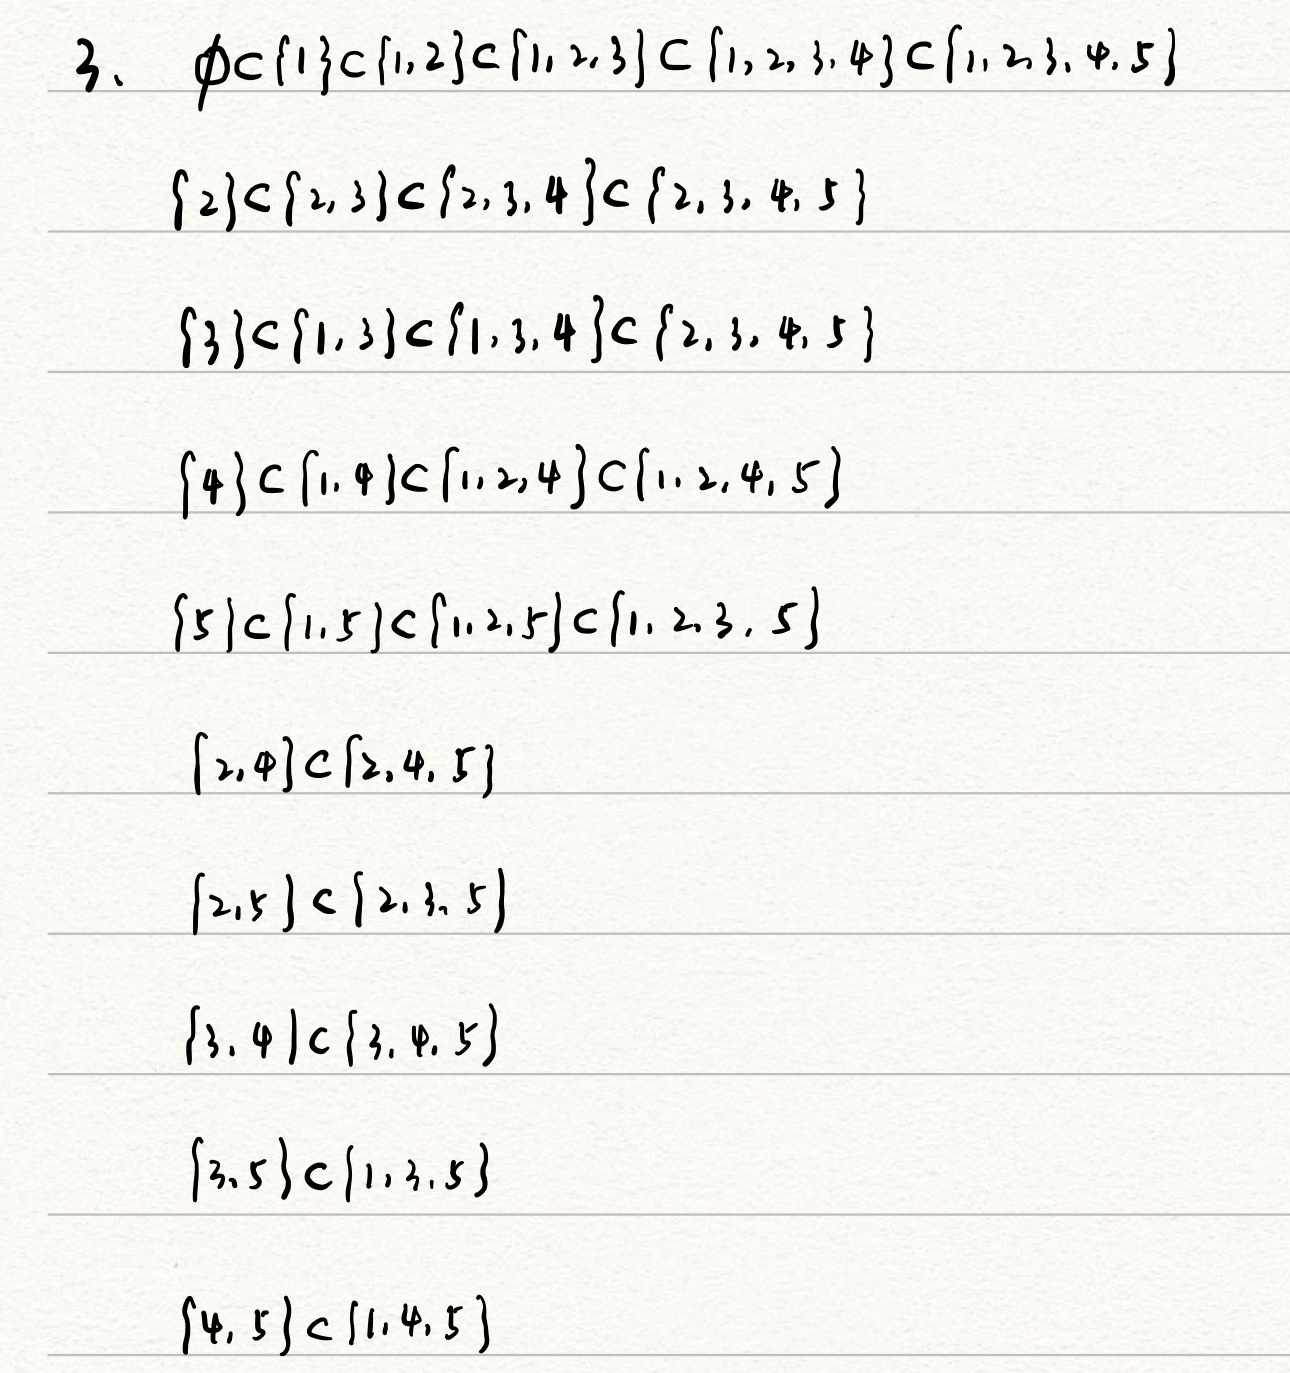 3. ∅⊂{1}⊂{1,2}⊂{1,2,3}⊂{1,2,3,4}⊂{1,2,3,4,5}
{2}⊂{2,3}⊂{2,3,4}⊂{2,3,4,5}
{3}⊂{1,3}⊂{1,3,4}⊂{2,3,4,5}
{4}⊂{1,4}⊂{1,2,4}⊂{1,2,4,5}
{5}⊂{1,5}⊂{1,2,5}⊂{1,2,3,5}
{2,4}⊂{2,4,5}
{2,5}⊂{2,3,5}
{3,4}⊂{3,4,5}
{3,5}⊂{1,3,5}
{4,5}⊂{1,4,5}